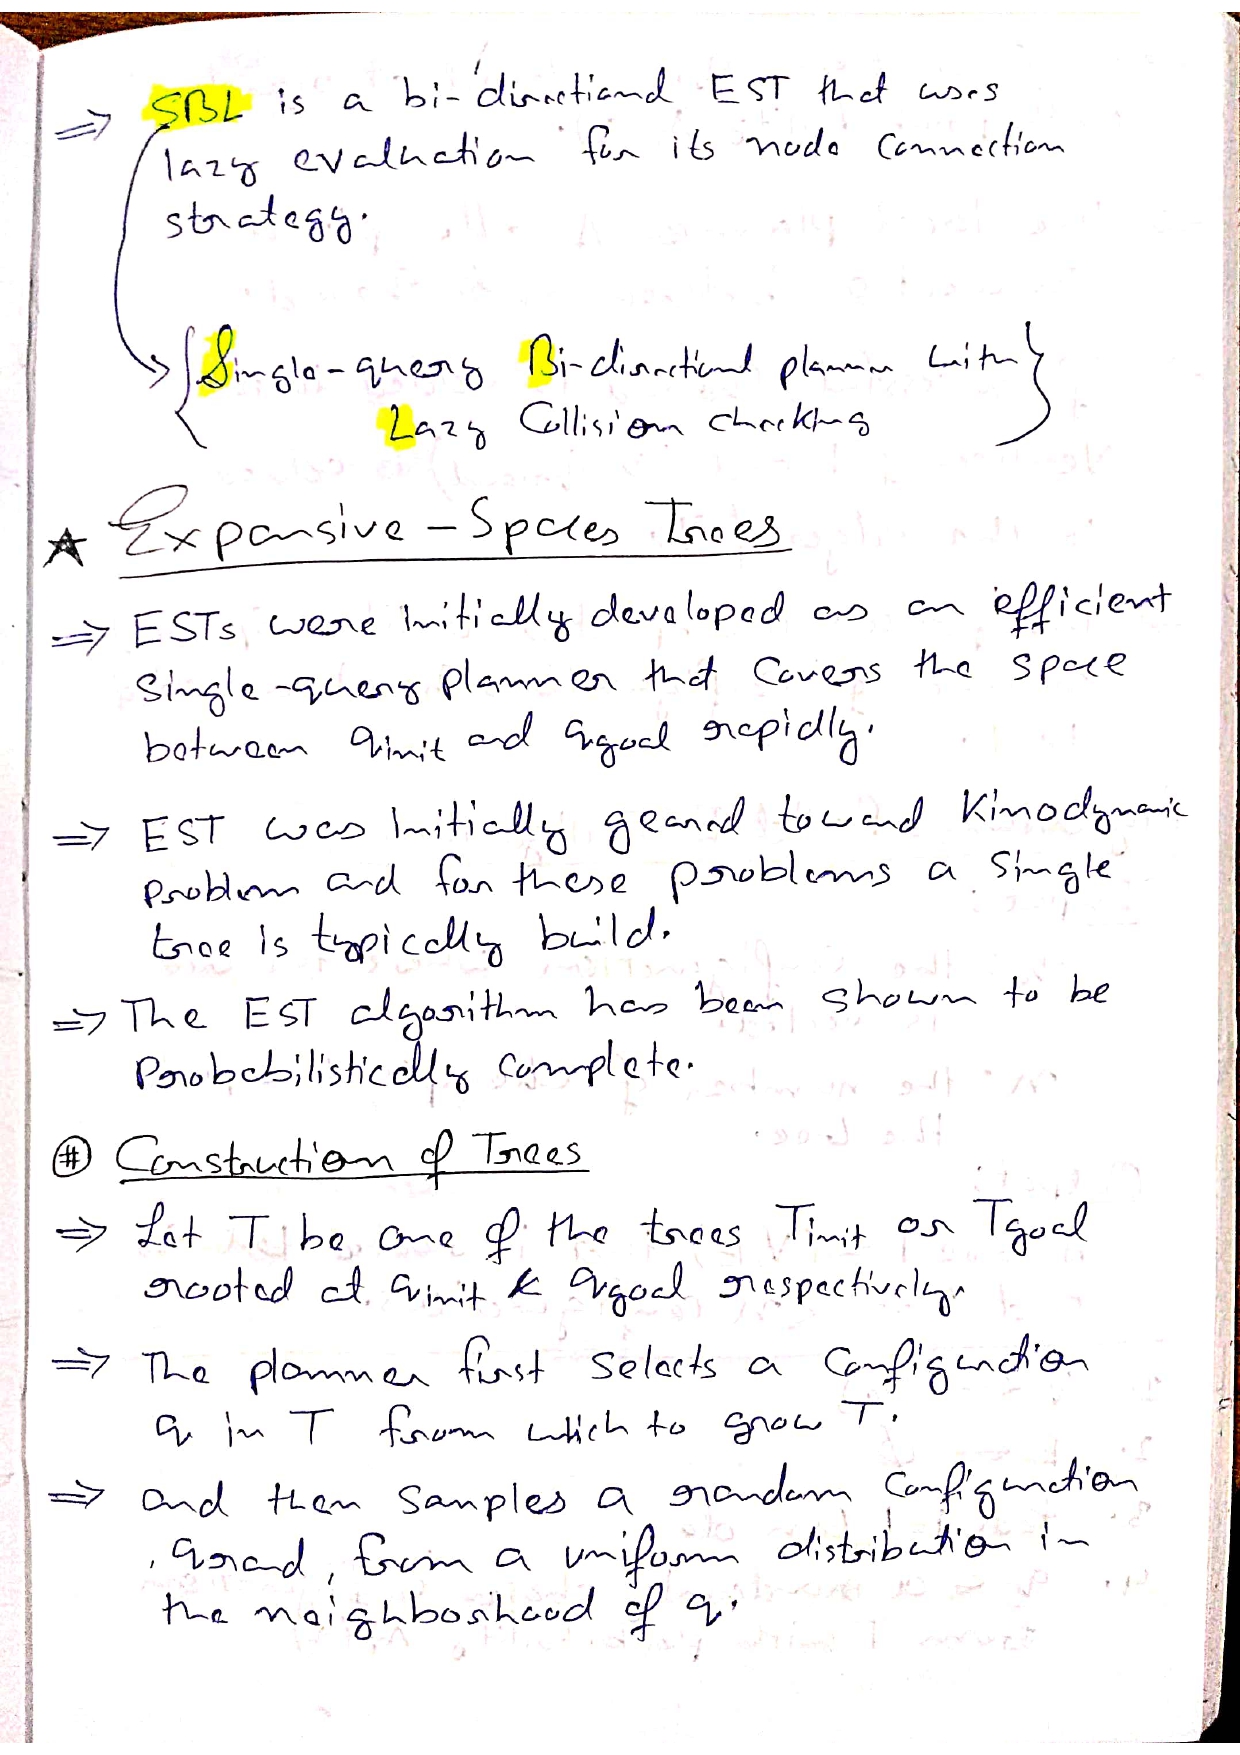 ⇒ SBL is a bi-directional EST that uses
lazy evaluation for its node connection
strategy.
{Single-query Bi-directional planner with}
Lazy Collision checking
★ Expansive-Spaces Trees
⇒ ESTs were initially developed as an efficient
Single-query planner that Covers the space
between qinit and qgoal rapidly.
⇒ EST was initially geared toward Kinodynamic
problem and for these problems a single
tree is typically build.
⇒ The EST algorithm has been shown to be
Probabilistically complete.
# Construction of Trees
⇒ Let T be one of the trees Tinit or Tgoal
rooted at qinit & qgoal respectively.
⇒ The planner first selects a configuration
q in T from which to grow T.
⇒ and then samples a random configuration
, qrand, from a uniform distribution in
the neighborhood of q.